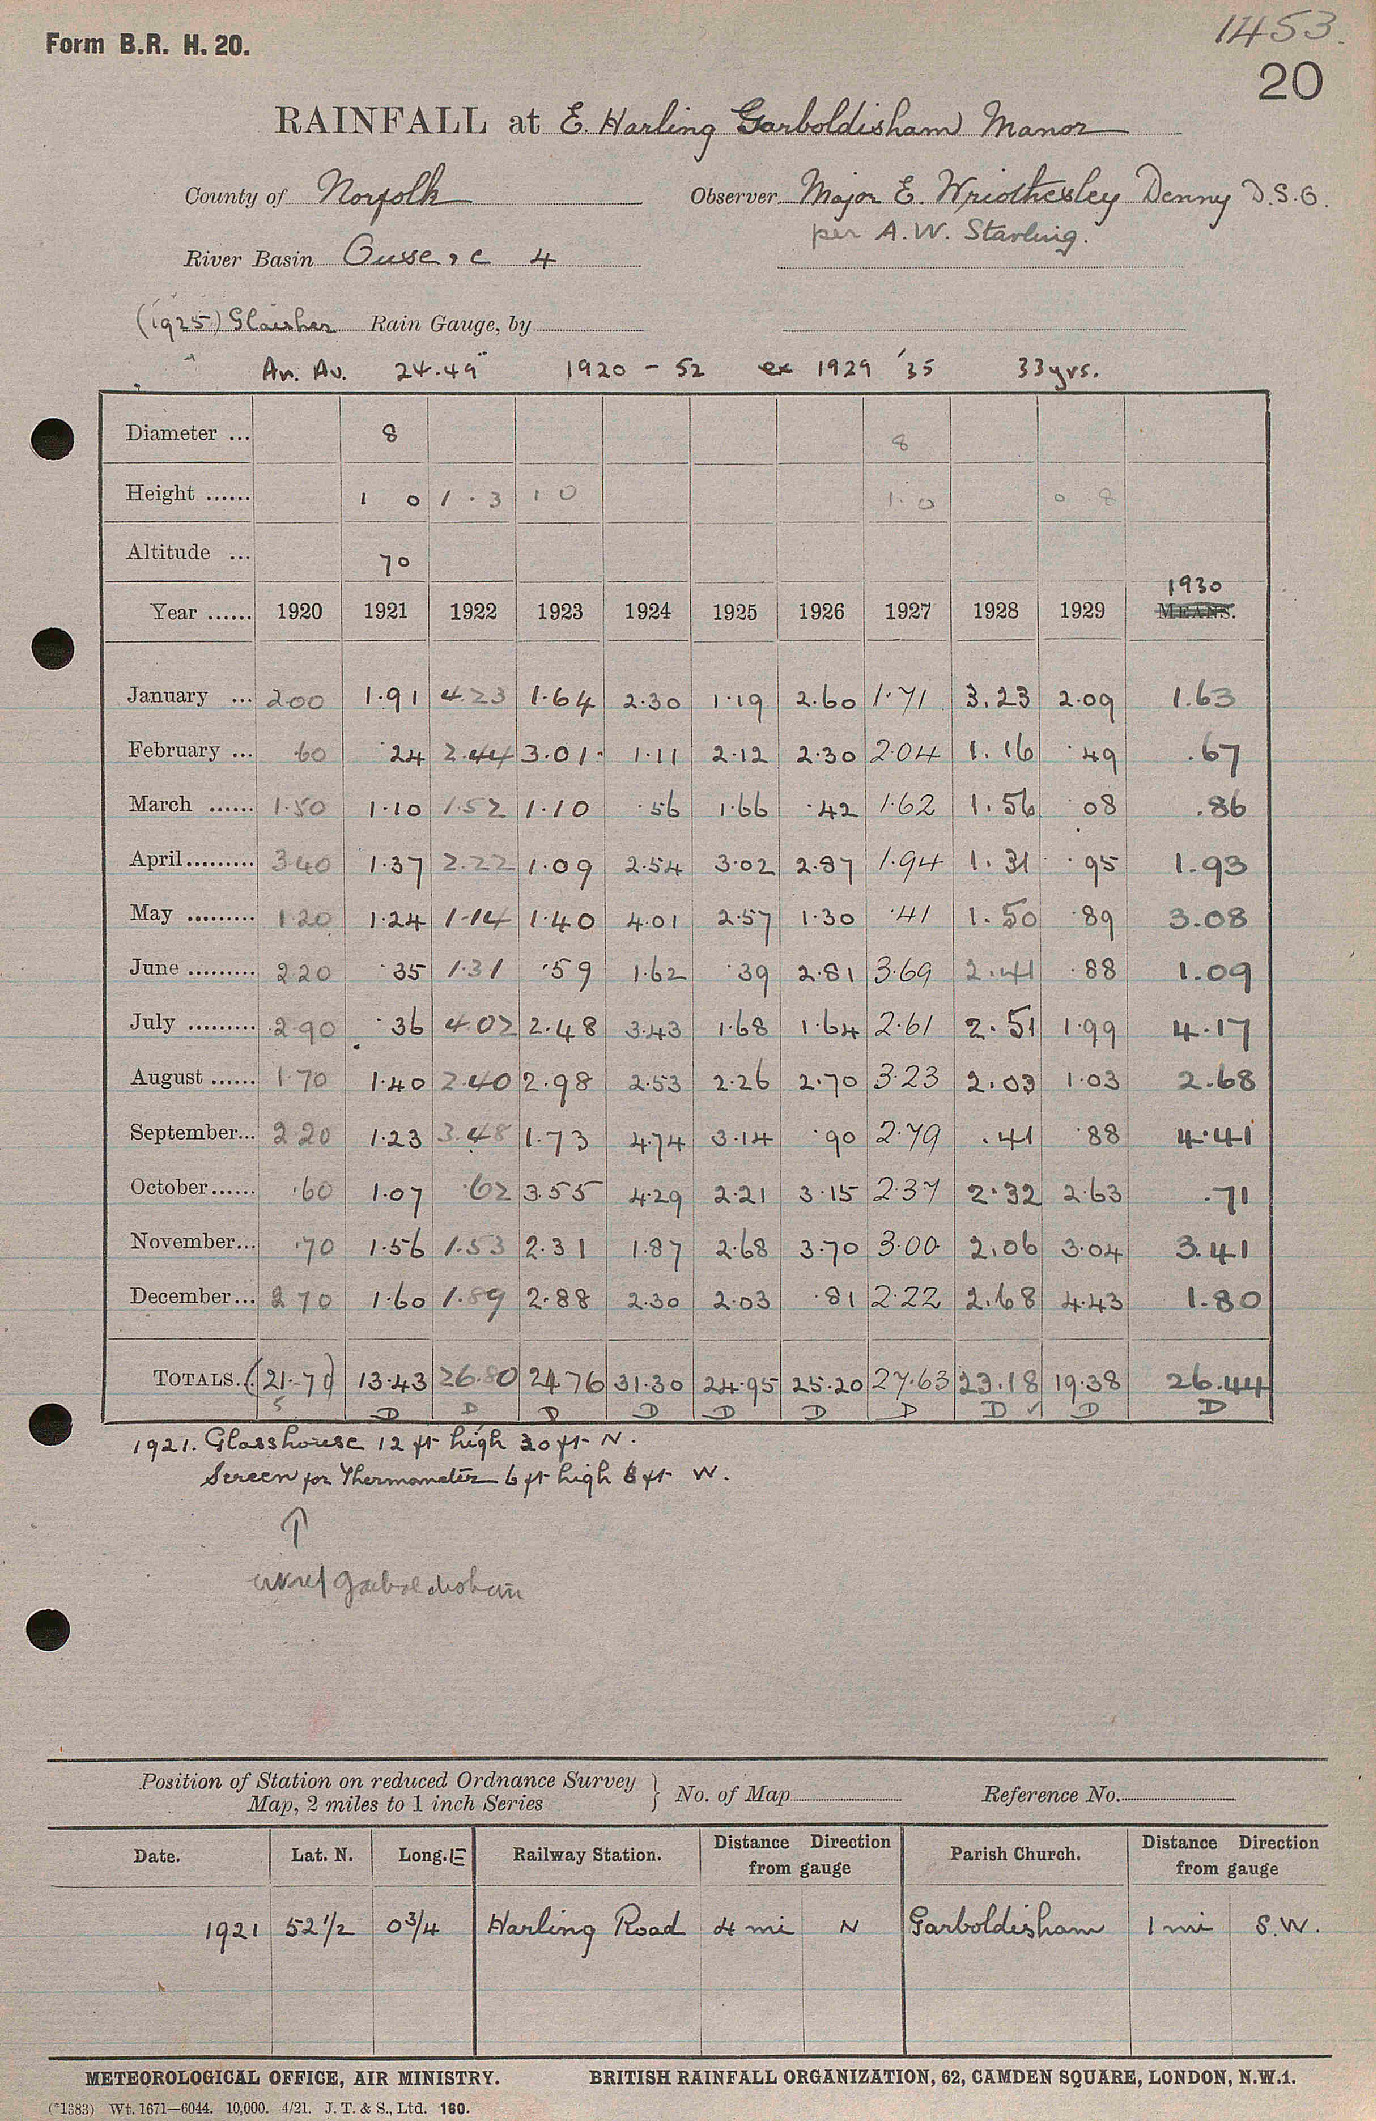 Form B.R. H. 20.
1453.
20
RAINFALL at E. Harling Garboldisham Manor
County of Norfolk Observer Major E. Wriothesley Denny D.S.O.
per A.W. Starling.
River Basin Ouse, c 4
(1925) Glaisher Rain Gauge, by
An. Av. 24.49" 1920 - 52 ex 1929 '35 33yrs.
Diameter ... 8 8
Height ...... 1 0 1 . 3 1 0 1. 0 0 8
Altitude ... 70
1930
Year ...... 1920 1921 1922 1923 1924 1925 1926 1927 1928 1929 MEANS.
January ... 2.00 1.91 4.23 1.64 2.30 1.19 2.60 1.71 3.23 2.09 1.63
February ... .60 .24 2.44 3.01 1.11 2.12 2.30 2.04 1.16 .49 .67
March ...... 1.50 1.10 1.52 1.10 .56 1.66 .42 1.62 1.56 08 .86
April......... 3.40 1.37 2.22 1.09 2.54 3.02 2.87 1.94 1.31 .95 1.93
May ......... 1.20 1.24 1.14 1.40 4.01 2.57 1.30 .41 1.50 .89 3.08
June ......... 2.20 .35 1.31 .59 1.62 .39 2.81 3.69 2.41 .88 1.09
July ......... 2.90 .36 4.02 2.48 3.43 1.68 1.64 2.61 2.51 1.99 4.17
August ...... 1.70 1.40 2.40 2.98 2.53 2.26 2.70 3.23 2.03 1.03 2.68
September... 2.20 1.23 3.48 1.73 4.74 3.14 .90 2.79 .41 .88 4.41
October...... .60 1.07 .62 3.55 4.29 2.21 3.15 2.37 2.32 2.63 .71
November... .70 1.56 1.53 2.31 1.87 2.68 3.70 3.00 2.06 3.04 3.41
December... 2.70 1.60 1.89 2.88 2.30 2.03 .81 2.22 2.68 4.43 1.80
TOTALS. (21.70) 13.43 26.80 24 76 31.30 24.95 25.20 27.63 23.18 19.38 26.44
S D D D D D D D D ✓ D D
1921. Glasshouse 12 ft high 30 ft N.
Screen for Thermometer 6 ft high 8 ft W.
↑
Garboldisham
Position of Station on reduced Ordnance Survey
Map, 2 miles to 1 inch Series } No. of Map Reference No.
Date. Lat. N. Long. E Railway Station. Distance Direction from gauge Parish Church. Distance Direction from gauge
1921 52 1/2 0 3/4 Harling Road 4 mi N Garboldisham 1 mi S.W.
METEOROLOGICAL OFFICE, AIR MINISTRY. BRITISH RAINFALL ORGANIZATION, 62, CAMDEN SQUARE, LONDON, N.W.1.
(*1383) Wt. 1671—6044. 10,000. 4/21. J. T. & S., Ltd. 160.